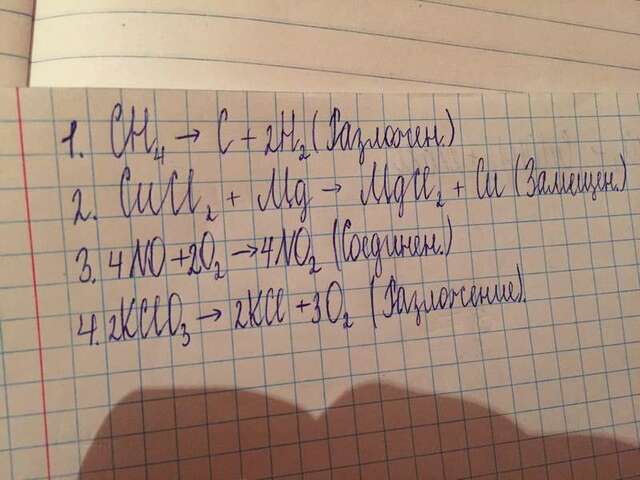 1. CH₄ → C + 2H₂ (Разложен.)
2. CuCl₂ + Mg → MgCl₂ + Cu (Замещен.)
3. 4NO + 2O₂ → 4NO₂ (Соединен.)
4. 2KClO₃ → 2KCl + 3O₂ (Разложение)